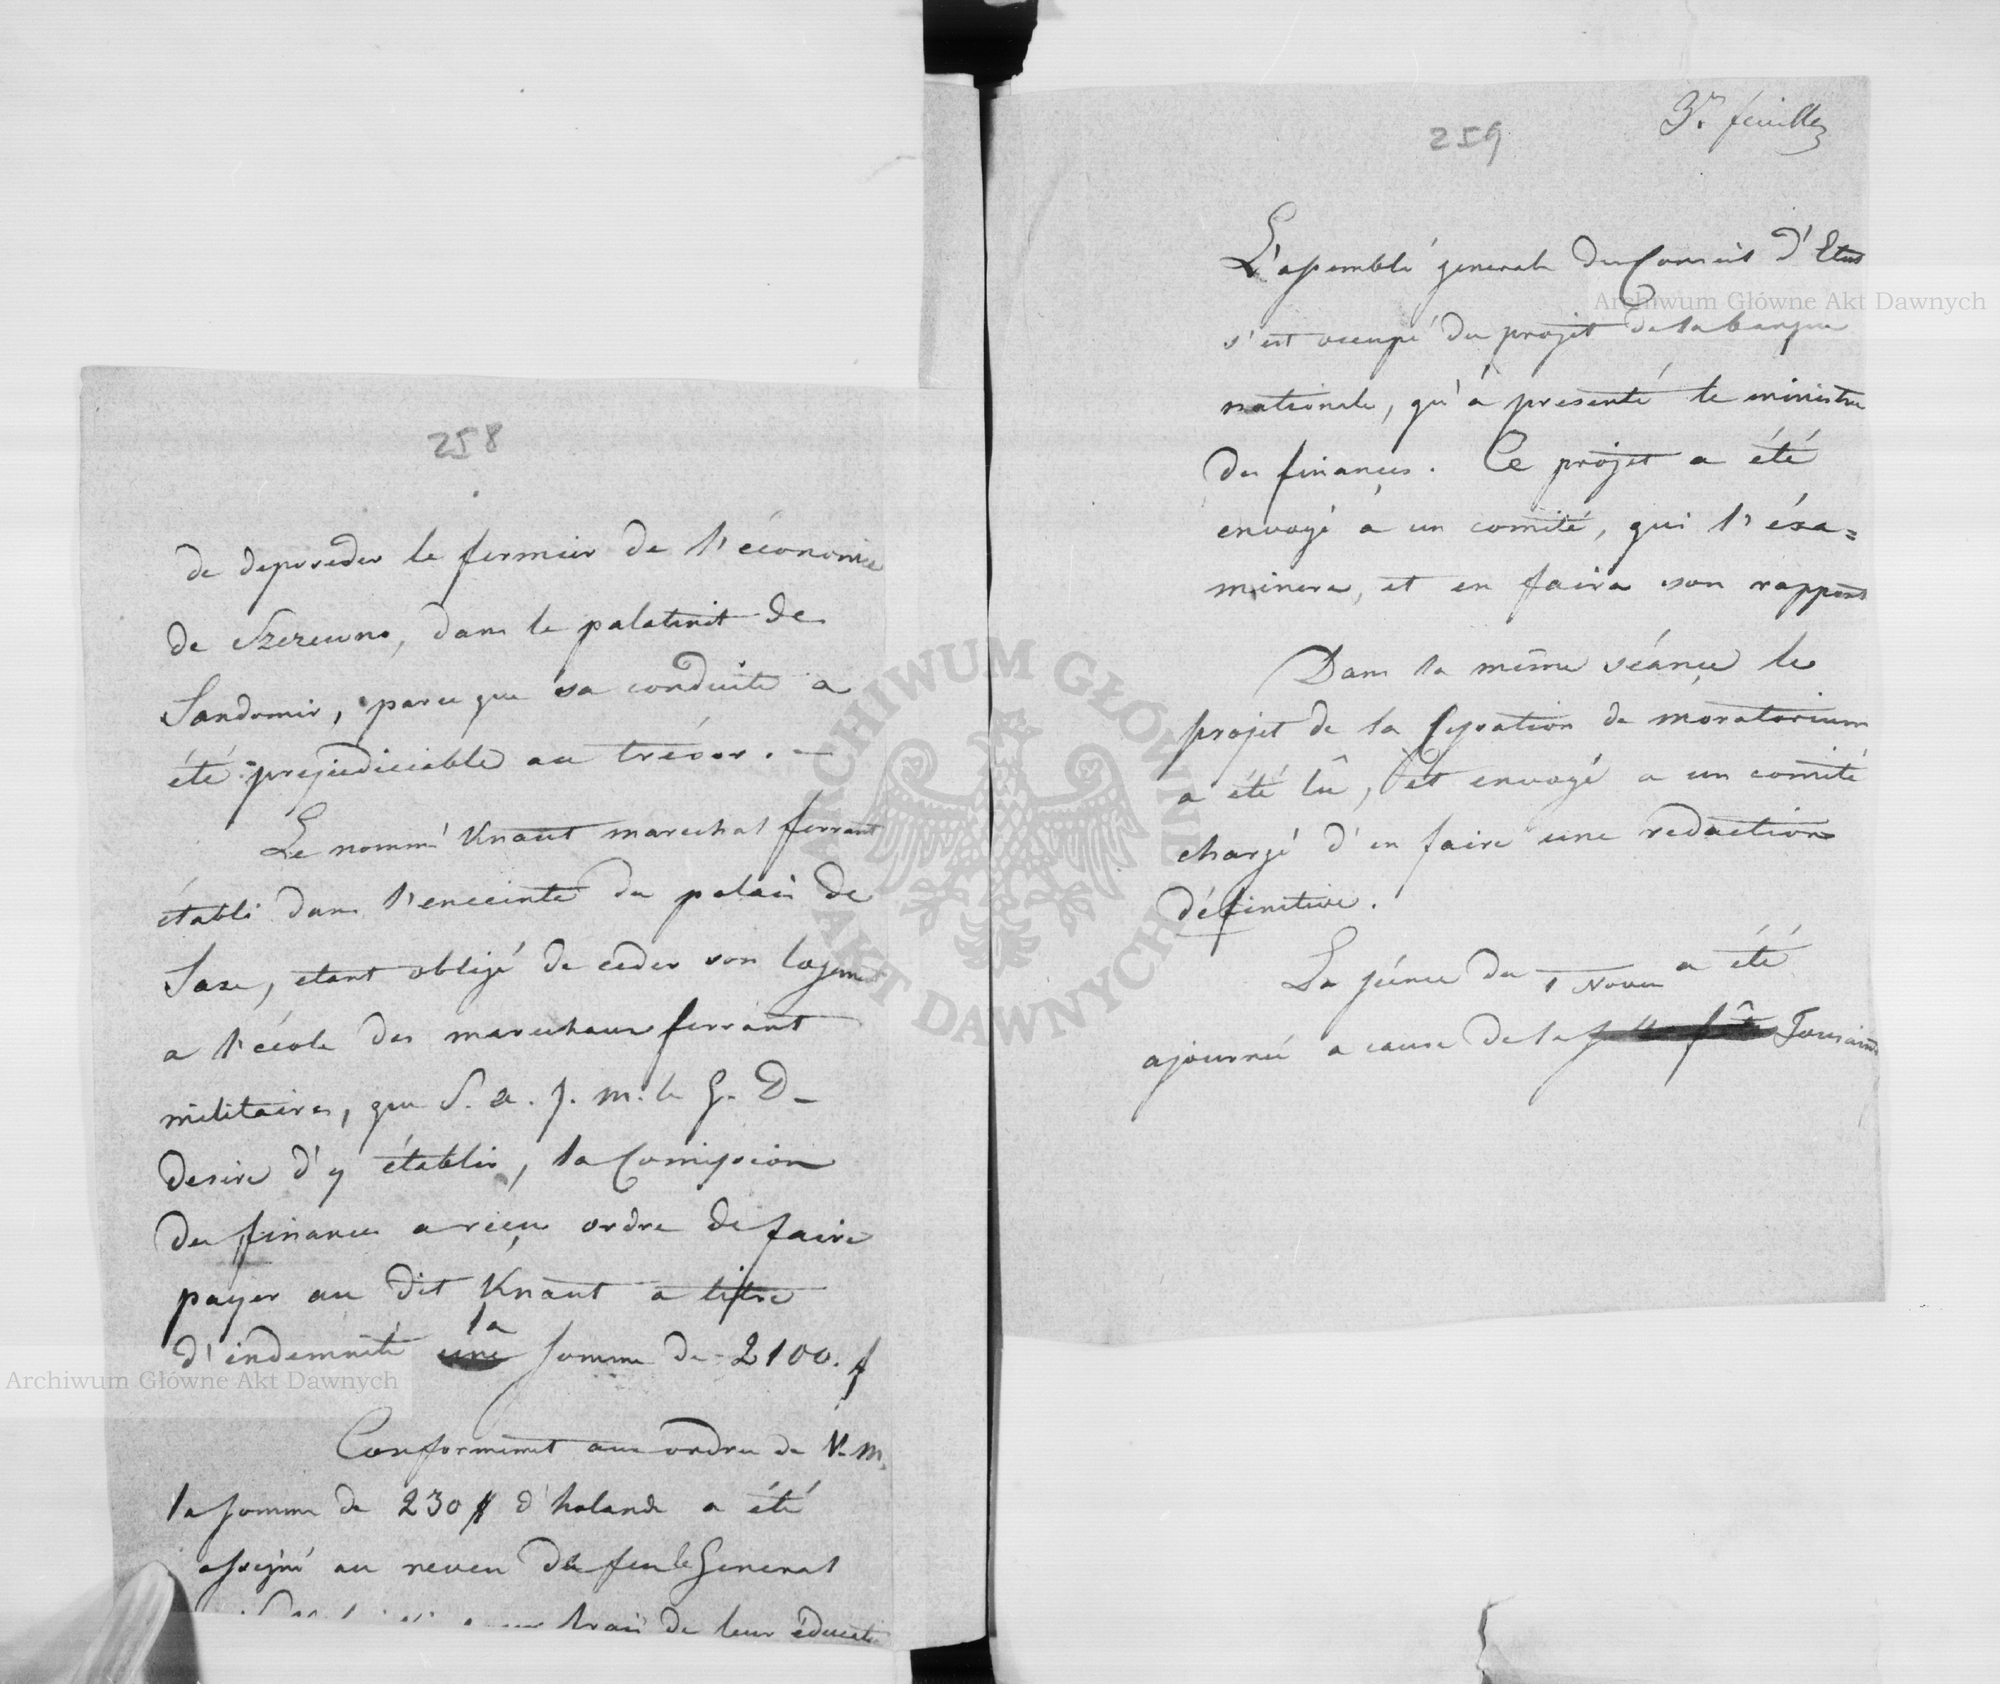 258
de deposeder le fermier de l'économie
de Szerewno, dans le palatinit de
Sandomir, parce que sa conduite a
été prejudiciable au trésor. —
Le nommé Knaut marechal ferrant
établi dans l'enceinte du palais de
Saxe, etant obligé de ceder son logemt
a l'école des marechaux ferrant
militaires, que S. a. J. m. le G. D-
desire d'y établir, la Comission
des finances a reçu ordre de faire
payer au dit Knaut a titre
d'indemnité la somme de 2100. f
Conformemet aux ordres de V. M.
la somme de 230 # d'holande a été
assigné au neveu de feu le General
de leur éducatio
259
3.me feuille
L'assemblé generale du Conseil d'Etat
s'est occupé du projet de la banque
nationale, qu'à presenté le ministre
des finances. Ce projet a été
envoyé a un comité, qui l'éxa=
minera, et en faira son rapport
Dans la même séance le
projet de la de moratorium
a été lû, et envoyé a un comité
chargé d'en faire une redaction
définitive.
La séance du 1 Novem a été
ajournée a cause de la Tousaint
Archiwum Główne Akt Dawnych
Archiwum Główne Akt Dawnych
ARCHIWUM GŁÓWNE AKT DAWNYCH